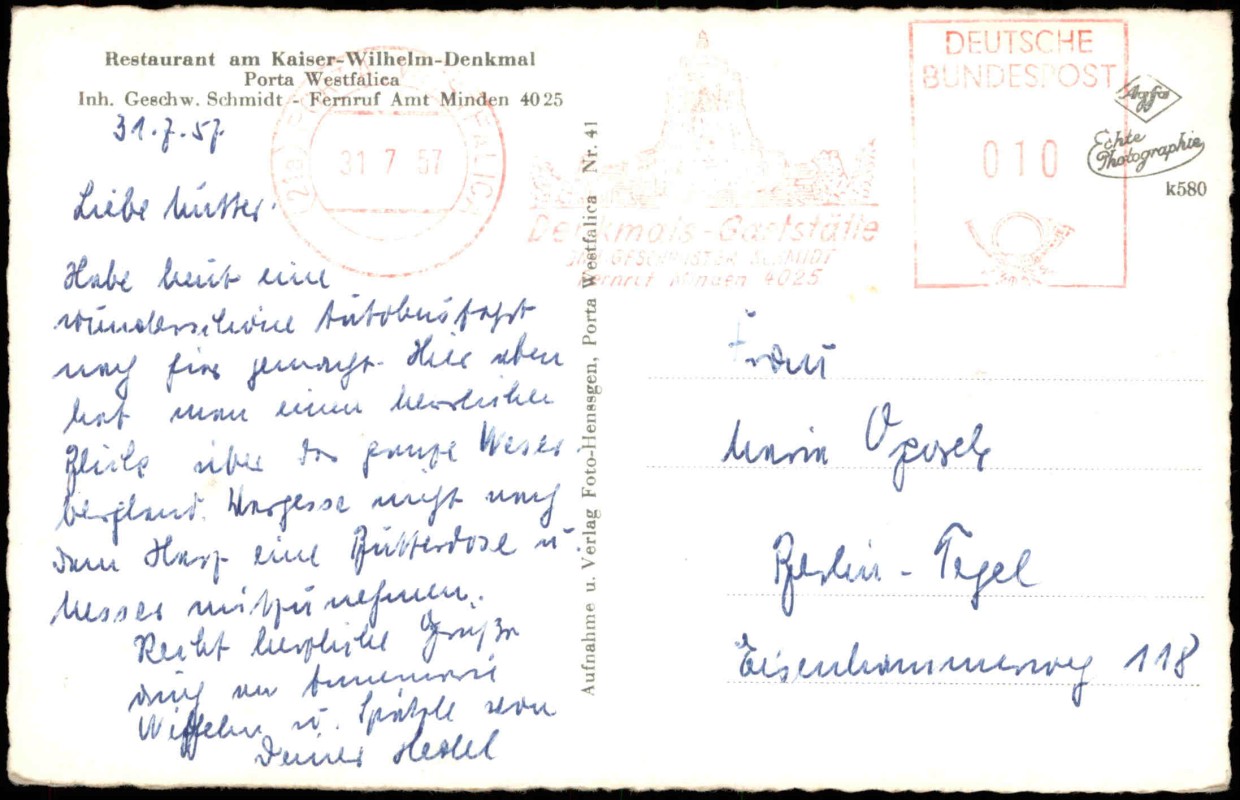 Restaurant am Kaiser-Wilhelm-Denkmal
Porta Westfalica
Inh. Geschw. Schmidt - Fernruf Amt Minden 4025
31.7.57
Liebe Mutter.
Habe heut eine
wunderschöne Autobusfahrt
nach hier gemacht. Hier oben
hat man einen herrlichen
Blick über das ganze Weser
bergland. Vergesse nicht nach
dem Harz eine Butterdose u.
Messer mitzunehmen.
Recht herzliche Grüße
auch an Annemarie
u. Spätzle von
Deiner
Aufnahme u. Verlag Foto-Henssgen, Porta Westfalica Nr. 41
PORTA WESTFALICA
31 7 57
Denkmals-Gaststätte
INH. GESCHWISTER SCHMIDT
Fernruf Minden 4025
DEUTSCHE
BUNDESPOST
010
Agfa
Echte
Photographie
k580
Frau
Maria
Berlin-Tegel
Eisenhammerweg 118